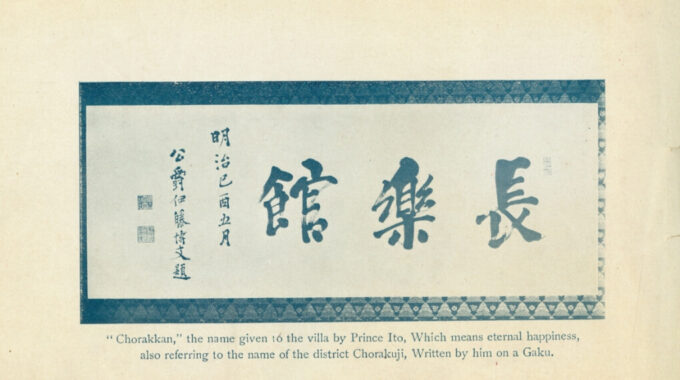 長樂館
明治己酉五月
公爵伊藤博文題
“ Chorakkan,” the name given to the villa by Prince Ito, Which means eternal happiness,
also referring to the name of the district Chorakuji, Written by him on a Gaku.